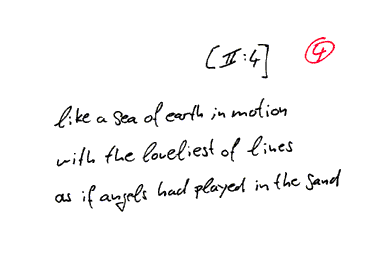 [II:4] 4
like a sea of earth in motion
with the loveliest of lines
as if angels had played in the sand